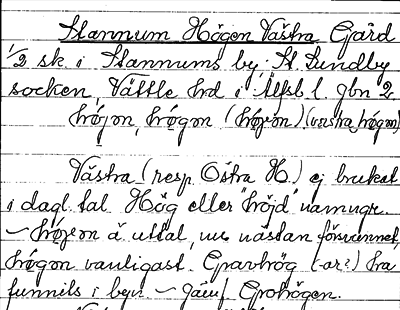 Stannum Högen Västra Gård
1/2 sk. i Stannums by. St. Lundby
socken, Vättle hrd i Älfsb. l. jbn 2
hǫ́jɔn, hǫ́gɔn (hǫ́jɔn) (västra hǫ́gɔn)
Västra (resp. Östra H.) ej brukat
i dagl. tal Hög eller "höjd" namngr.
~ hǫ́jɔn ä uttal, nu nästan försvunnet,
hǫ́gɔn vanligast. Gravhög (-ar?) ha
funnits i byn. ~ Jämf. Grohögen.